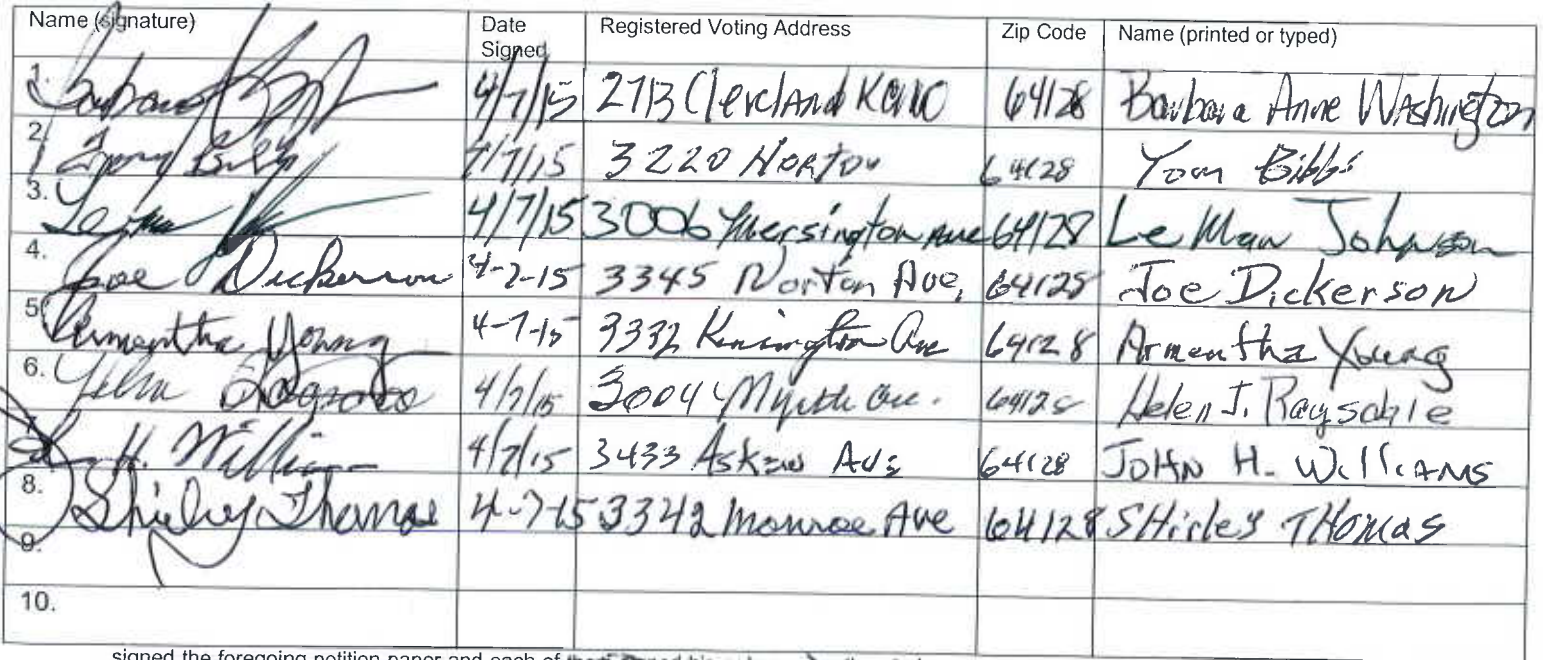 Name (signature) Date Signed Registered Voting Address Zip Code Name (printed or typed)
1. 4/7/15 2713 Cleveland KCMO 64128 Barbara Anne Washington
2. 4/7/15 3220 Norton 64128 Tom Bibbs
3. 4/7/15 3006 Mersington Ave 64128 Le Man Johnson
4. Joe Dickerson 4-7-15 3345 Norton Ave, 64128 Joe Dickerson
5. Armentha Young 4-7-15 3332 Kensington Ave 64128 Armentha Young
6. 4/7/15 3004 Myrtle Ave. 64128 Helen J.
7. H. Williams 4/7/15 3433 Askew Ave 64128 JOHN H. WilliAMS
8. Shirley Thomas 4-7-15 3342 Monroe Ave 64128 SHirley THomas
9.
10.
signed the foregoing petition paper and each of